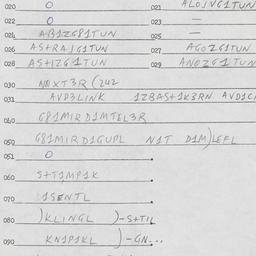 020 0 021 ALOJVG1TUN
022 0 023 —
024 AB1ZG81TUN 025 —
026 AS+RAJG1TUN 027 AGOZG1TUN
028 AS+IZG1TUN 029 ANOZG1TUN
030 NNXT3R (242
031 AVD3LINK 1ZBAS+1K3RN
040 G81MIRD1MTEL3R
050 G81MIRD1GUPL N1T D1M)LEFL
051 0
060 S+T1MP1K
070 1SENTL
080 )KLINGL )-S+TIL
090 KN1P1KL )-GN...